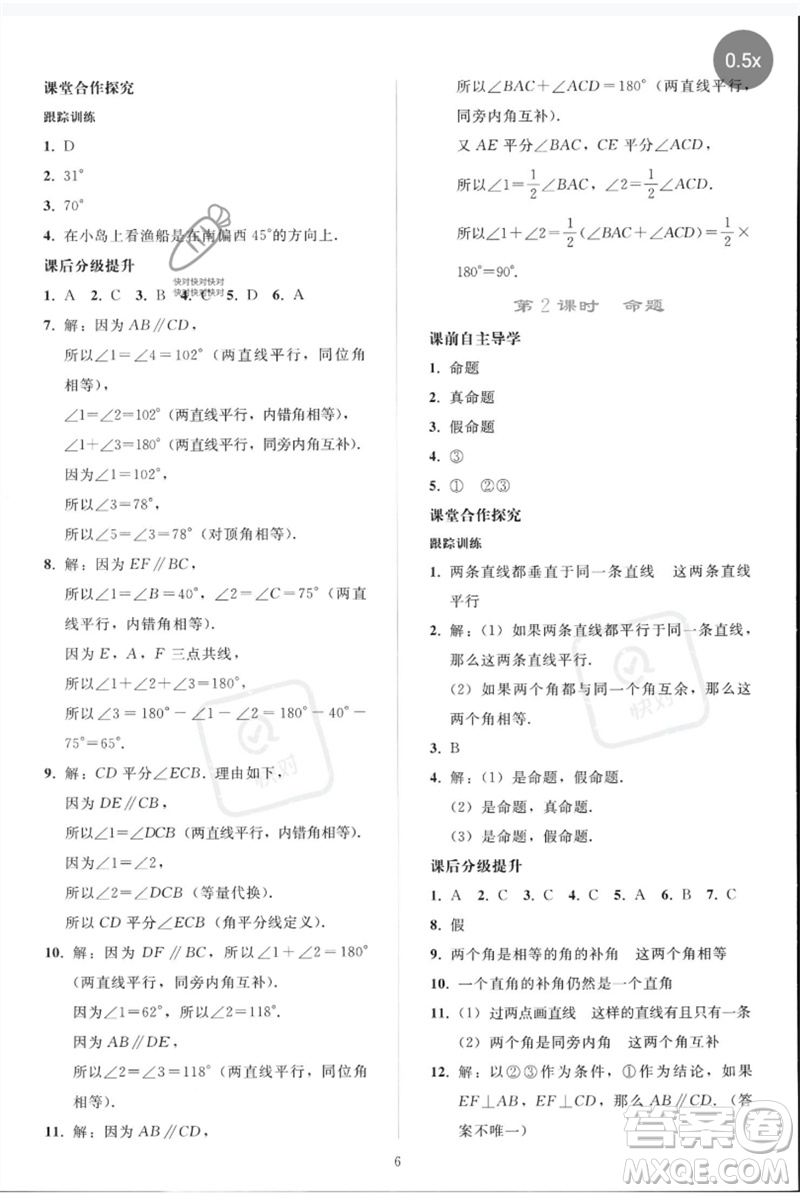 课堂合作探究
跟踪训练
1. D
2. 31°
3. 70°
4. 在小岛上看渔船是在南偏西45°的方向上.
课后分级提升
1. A 2. C 3. B 4. C 5. D 6. A
7. 解:因为AB∥CD,
所以∠1=∠4=102°(两直线平行,同位角
相等),
∠1=∠2=102°(两直线平行,内错角相等),
∠1+∠3=180°(两直线平行,同旁内角互补).
因为∠1=102°,
所以∠3=78°,
所以∠5=∠3=78°(对顶角相等).
8. 解:因为EF∥BC,
所以∠1=∠B=40°,∠2=∠C=75°(两直
线平行,内错角相等).
因为E,A,F三点共线,
所以∠1+∠2+∠3=180°,
所以∠3=180°-∠1-∠2=180°-40°-
75°=65°.
9. 解:CD平分∠ECB.理由如下,
因为DE∥CB,
所以∠1=∠DCB(两直线平行,内错角相等).
因为∠1=∠2,
所以∠2=∠DCB(等量代换).
所以CD平分∠ECB(角平分线定义).
10. 解:因为DF∥BC,所以∠1+∠2=180°
(两直线平行,同旁内角互补).
因为∠1=62°,所以∠2=118°.
因为AB∥DE,
所以∠3=∠2=118°(两直线平行,内错角
相等).
11. 解:因为AB∥CD,
所以∠BAC+∠ACD=180°(两直线平行,
同旁内角互补).
又AE平分∠BAC,CE平分∠ACD,
所以∠1=1/2∠BAC,∠2=1/2∠ACD.
所以∠1+∠2=1/2(∠BAC+∠ACD)=1/2×
180°=90°.
第2课时 命题
课前自主导学
1. 命题
2. 真命题
3. 假命题
4. ③
5. ① ②③
课堂合作探究
跟踪训练
1. 两条直线都垂直于同一条直线 这两条直线
平行
2. 解:(1)如果两条直线都平行于同一条直线,
那么这两条直线平行.
(2)如果两个角都与同一个角互余,那么这
两个角相等.
3. B
4. 解:(1)是命题,假命题.
(2)是命题,真命题.
(3)是命题,假命题.
课后分级提升
1. A 2. C 3. C 4. C 5. D 6. B 7. C
8. 假
9. 两个角是相等的角的补角 这两个角相等
10. 一个直角的补角仍然是一个直角
11. (1)过两点画直线 这样的直线有且只有一条
(2)两个角是同旁内角 这两个角互补
12. 解:以②③作为条件,①作为结论,如果
EF⊥AB,EF⊥CD,那么AB∥CD.(答
案不唯一)
6
0.5x
快对快对快对
快对快对快对
快对
快对
答案圈
MXQE.COM